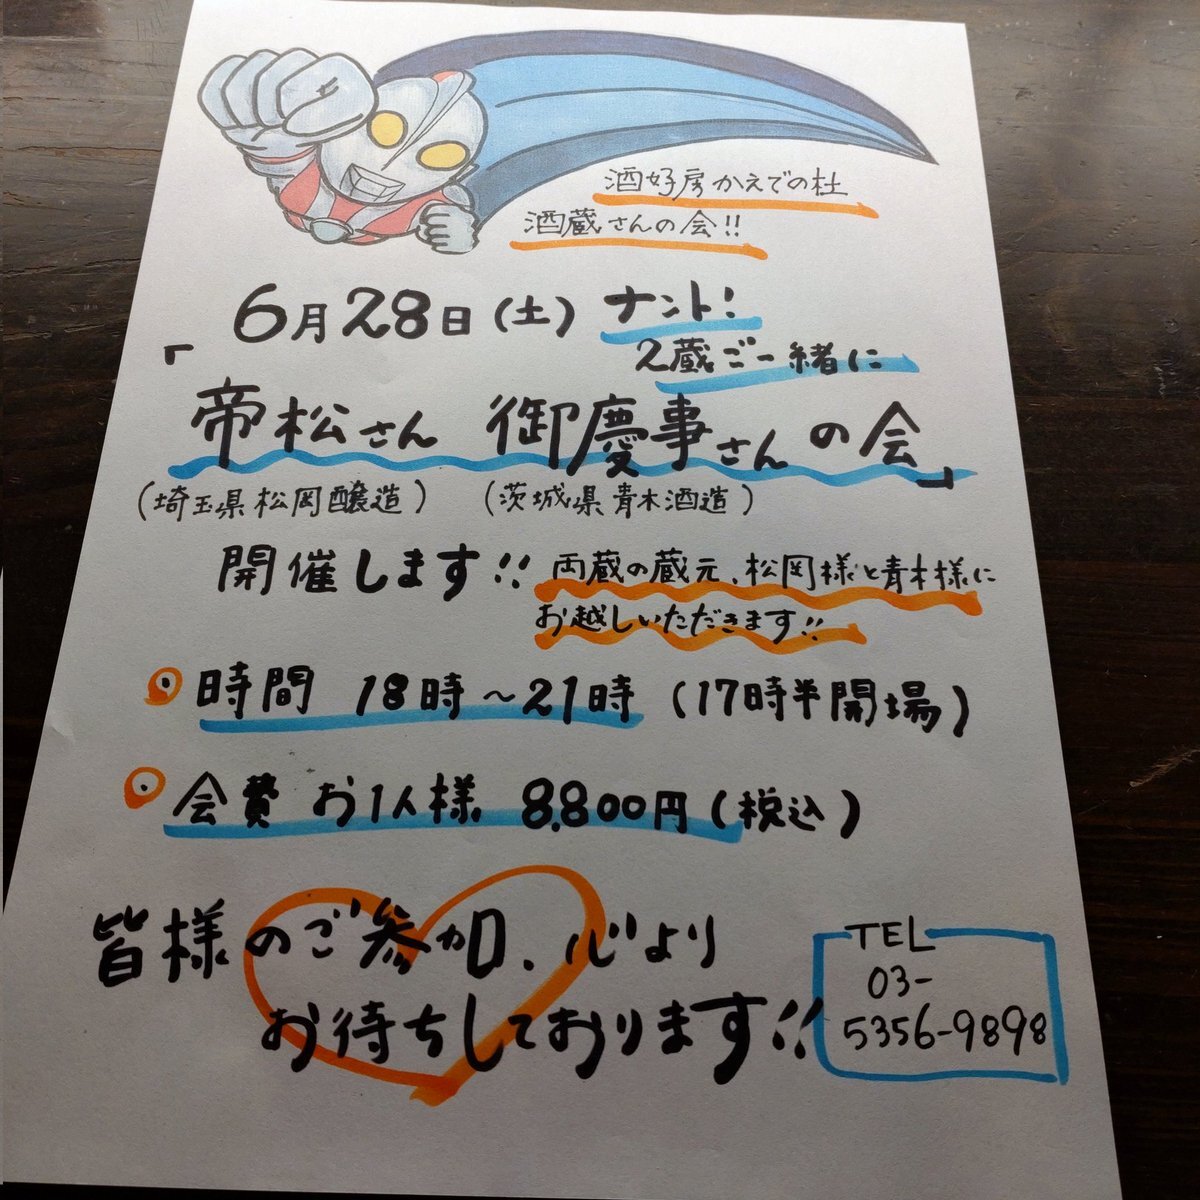 酒好房かえでの杜
酒蔵さんの会!!
6月28日(土) ナント!
2蔵ご一緒に
「帝松さん 御慶事さんの会」
(埼玉県松岡醸造) (茨城県青木酒造)
開催します!! 両蔵の蔵元、松岡様と青木様に
お越しいただきます!!
時間 18時~21時 (17時半開場)
会費 お1人様 8,800円(税込)
皆様のご参加、心より
お待ちしております!!
TEL
03-
5356-9898